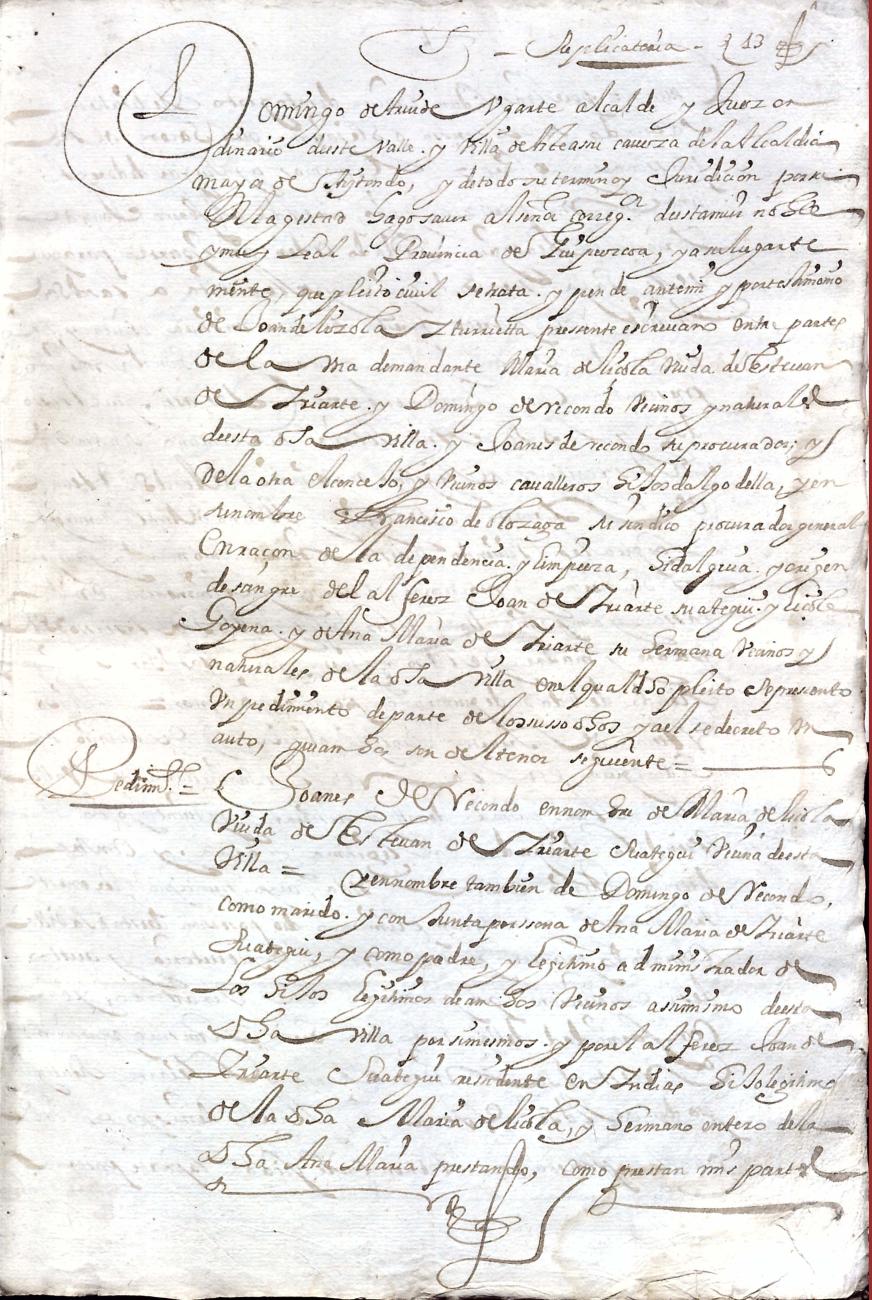 Suplicatoria - 13
Domingo de Ugarte alcalde y Juez or
dinario deste Valle y Villa de caveza de la Alcaldia
mayor de Aiztondo, y de todo su termino y Juridicion por su
Magestad hago saver al señor correg.or desta muy noble
y muy Leal Provincia de Guipuzcoa, y a su lugarte
niente, que pleito civil se trata y pende antemi y por testimonio
de Joan de Yturrieta pressente escrivano entre partes
de la una demandante Maria de licola Viuda de Estevan
de Yriarte y Domingo de recondo Vecinos y naturales
desta dha Villa y Joanes de recondo su procurador, y
de la otra el concejo, y Vecinos cavalleros hijosdalgo della, y en
su nombre Francisco de Olozaga su sindico procurador general
en raçon de la dependencia y limpieza, hidalguia y origen
de sangre del alferez Joan de Yriarte suategui y licola
Goyena y de Ana Maria de Yriarte su hermana Vecinos y
naturales de la dha Villa en el qual dho pleito se pressento
Un pedimiento de parte de los susso dhos y a el se decreto Un
auto, que ambos son del tenor seguiente =
Pedim.to = Joanes de Recondo en nombre de Maria de licola
Viuda de Estevan de Yriarte Suategui Vecina desta
Villa = y en nombre tambien de Domingo de Recondo,
como marido y conjunta perssona de Ana Maria de Yriarte
Suategui, y como padre, y legitimo administrador de
los hijos legitimos de ambos Vecinos assimismo desta
dha Villa por si mesmos y por el alferez Joan de
Yriarte Suategui residente en Indias hijo legitimo
de la dha Maria de licola, y hermano entero de la
dha Ana Maria prestando, como prestan mis partes